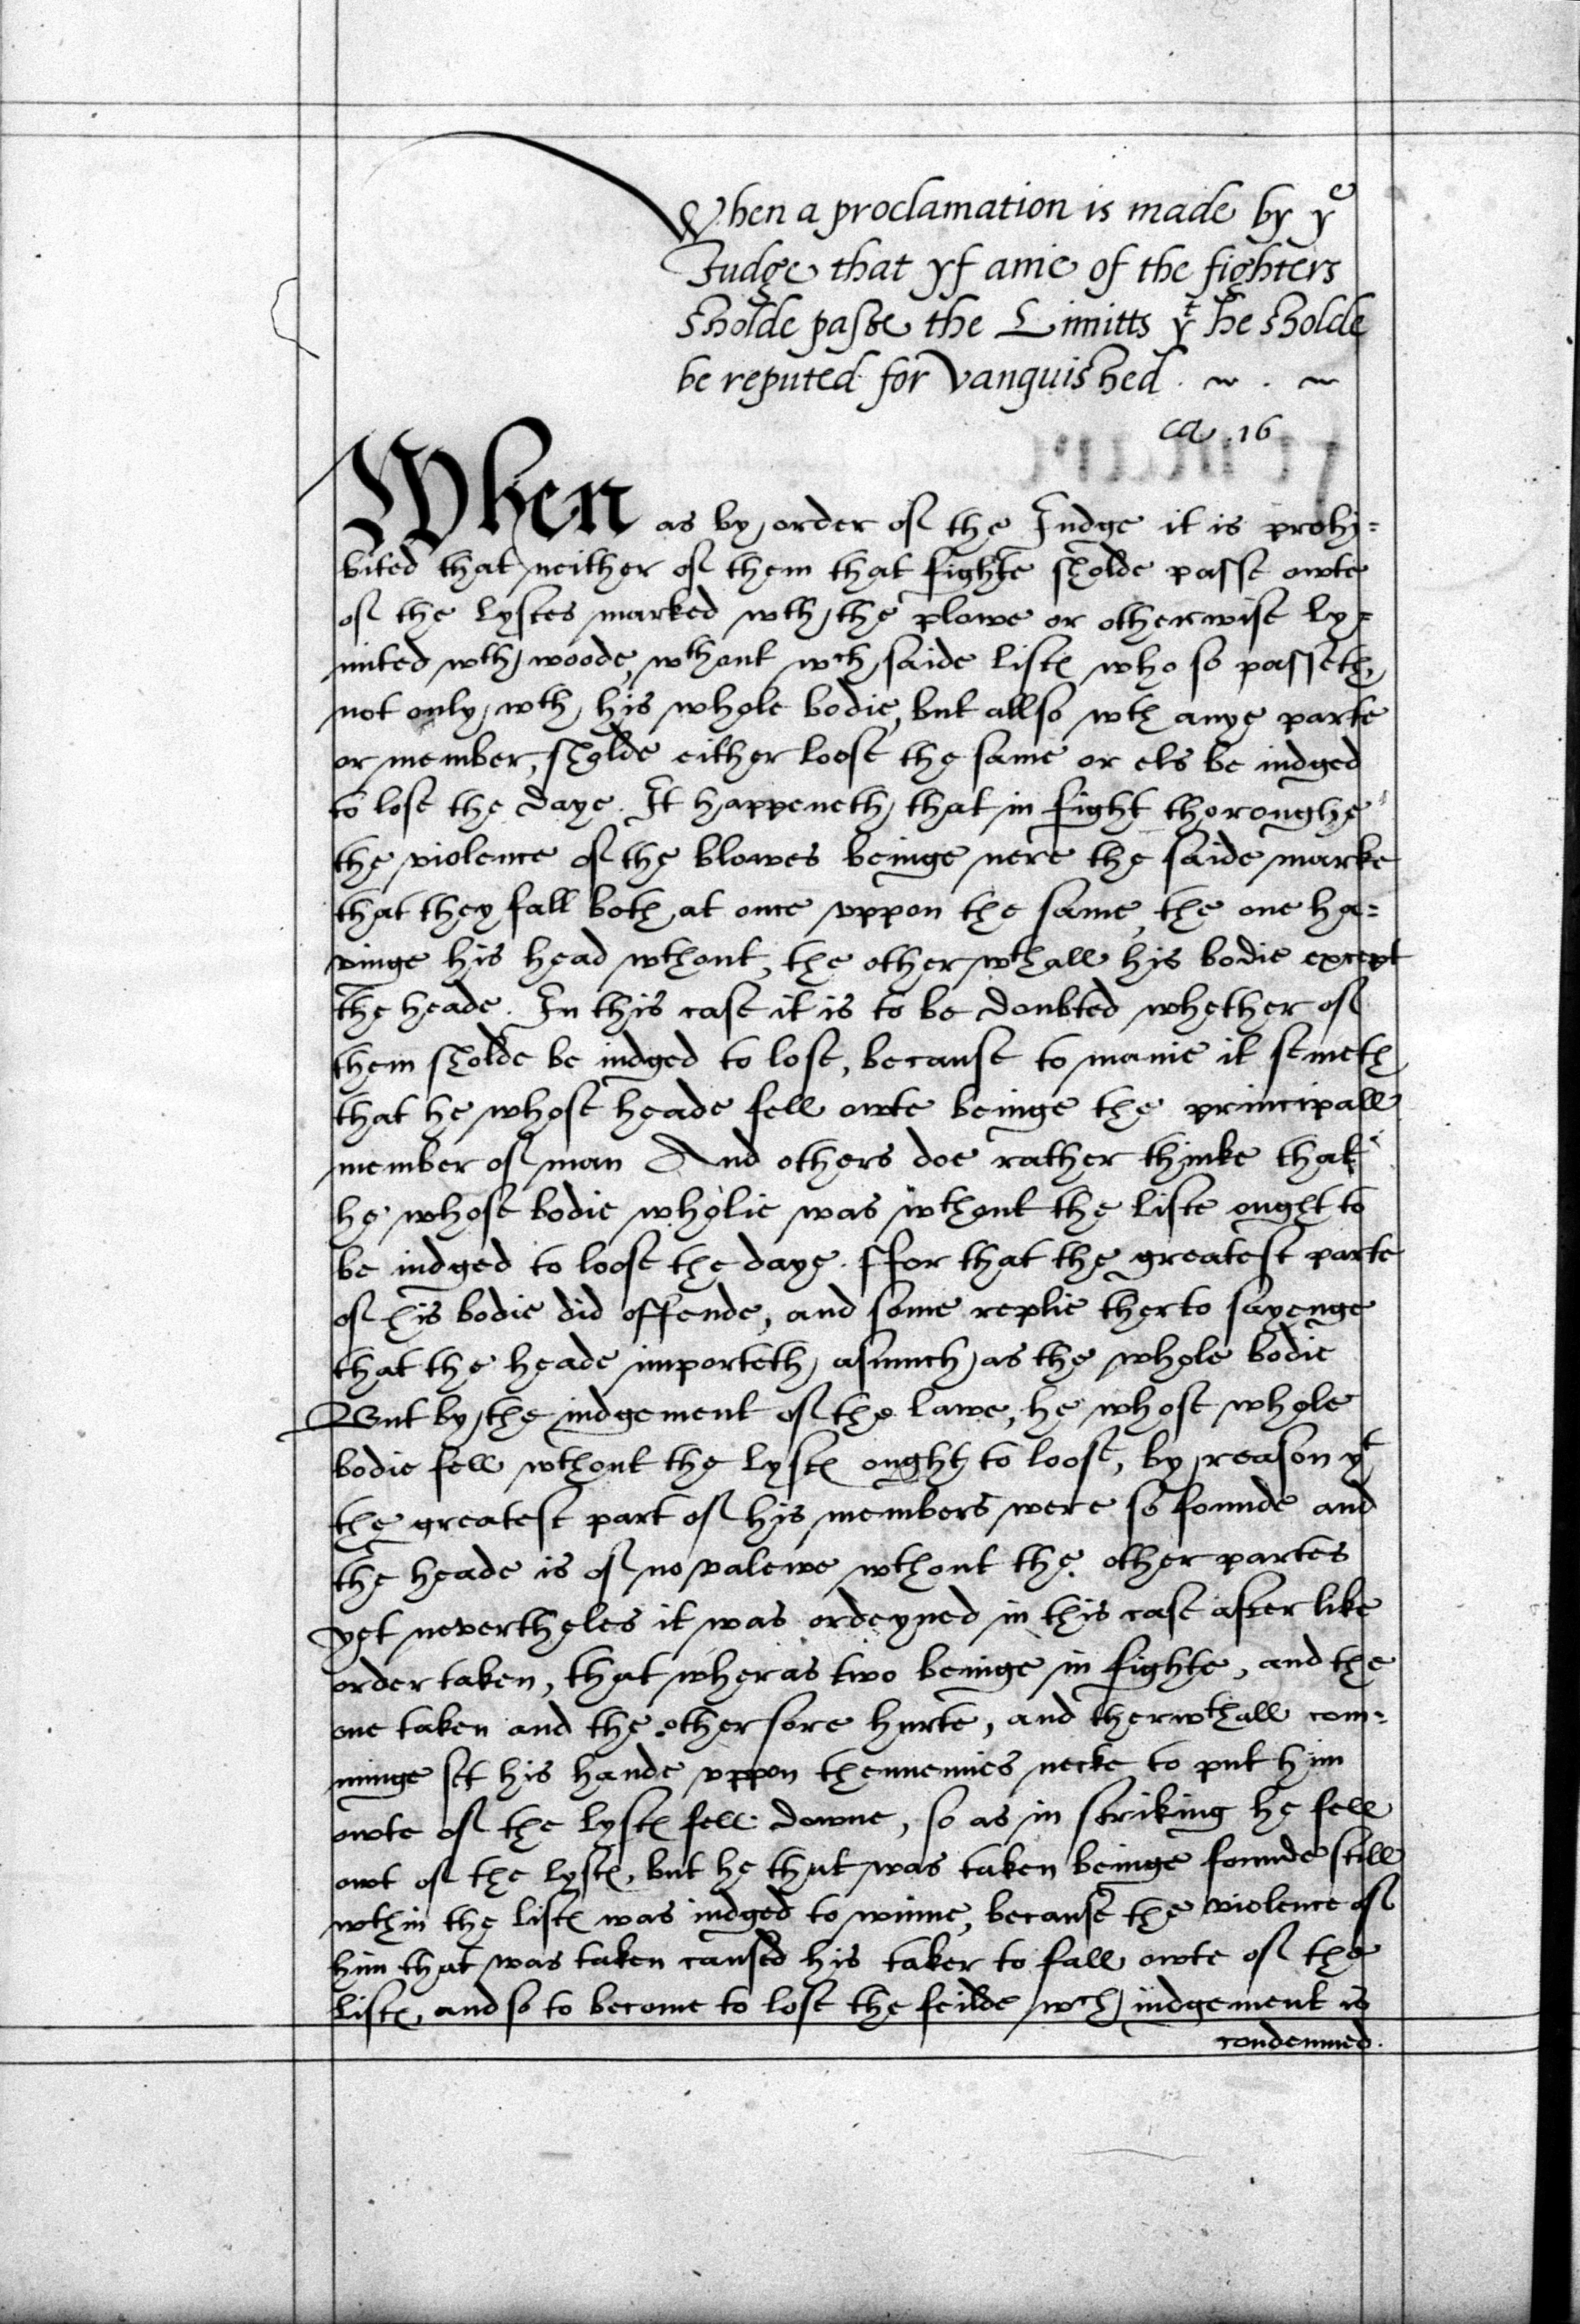 When a proclamation is made by yᵉ
Judge that yf anie of the fighters
sholde passe the Limitts yᵗ he sholde
be reputed for vanquished . ~ . ~
ca. 16
When as by order of the Judge it is prohi=
bited that neither of them that fighte sholde passe owte
of the lystes marked wth the plowe or otherwise ly=
mited wth woode, wthout wch saide liste who so passeth
not only wth his whole bodie, but allso wth anye parte
or member, sholde either loose the same or els be iudged
to lose the daye. It happeneth that in fight thoroughe
the violence of the blowes beinge nere the saide marke
that they fall both at once vppon the same, the one ha=
vinge his head wthout, the other wthall his bodie except
the heade. In this case it is to be doubted whether of
them sholde be iudged to lose, because to manie it semeth
that he whose heade fell owte beinge the principall
member of man And others doe rather thinke that
he whose bodie wholie was wthout the liste ought to
be iudged to loose the daye. ffor that the greatest parte
of his bodie did offende, and some replie therto sayenge
that the heade importeth asmuch as the whole bodie
But by the iudgement of the lawe, he whose whole
bodie fell wthout the lystes ought to loose, by reason yᵗ
the greatest part of his members were so founde and
the heade is of no valewe wthout the other partes
yet neverthelеs it was ordeyned in this case after like
order taken, that wheras two beinge in fighte, and the
one taken and the other sore hurte, and therwthall com=
minge set his hande vppon thennemies necke to put him
owte of the lystes fell downe, so as in striking he fell
owt of the lystes, but he that was taken beinge founde still
wthin the listes was iudged to winne, because the violence of
him that was taken caused his taker to fall owte of the
listes, and so to become to lose the feilde wch iudgement is
condemned.